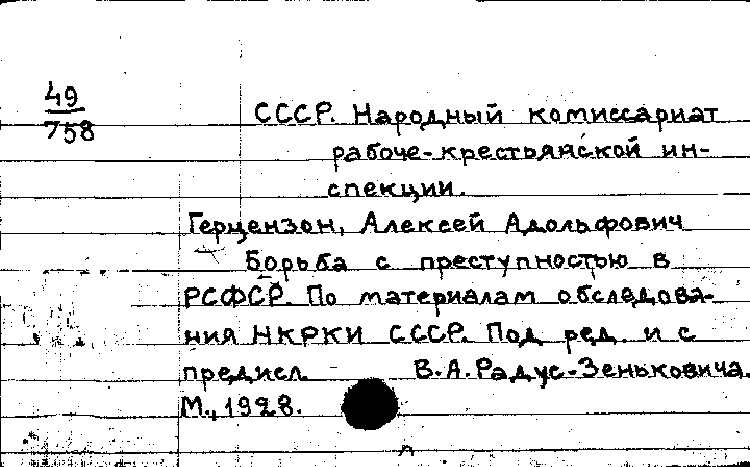 49
758
СССР. Народный комиссариат
рабоче-крестьянской ин-
спекции.
Герцензон, Алексей Адольфович
Борьба с преступностью в
РСФСР. По материалам обследова-
ния НКРКИ СССР. Под ред. и с
предисл. В.А.Радус-Зеньковича.
М., 1928.